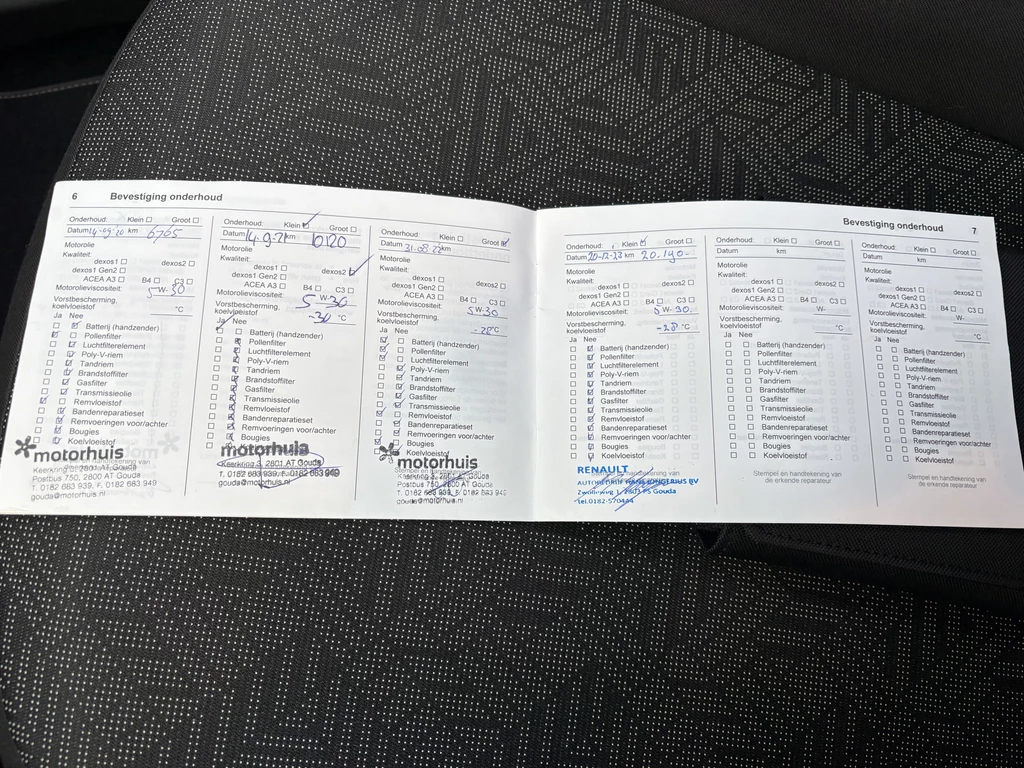 6 Bevestiging onderhoud
Onderhoud: Klein Groot
Datum 14-09-20 km 6765
Motorolie
Kwaliteit:
dexos1 dexos2
dexos1 Gen2
ACEA A3 B4 C3
Motorolieviscositeit: 5 W- 30
Vorstbescherming, koelvloeistof °C
Ja Nee
Batterij (handzender)
Pollenfilter
Luchtfilterelement
Poly-V-riem
Tandriem
Brandstoffilter
Gasfilter
Transmissieolie
Remvloeistof
Bandenreparatieset
Remvoeringen voor/achter
Bougies
Koelvloeistof
motorhuis
Keerkring 3, 2801 AT Gouda
Postbus 750, 2800 AT Gouda
T. 0182 683 939, F. 0182 683 949
gouda@motorhuis.nl
Onderhoud: Klein Groot
Datum 14-9-21 km 10120
Motorolie
Kwaliteit:
dexos1 dexos2
dexos1 Gen2
ACEA A3 B4 C3
Motorolieviscositeit: 5 W- 30
Vorstbescherming,
koelvloeistof -31 °C
Ja Nee
Batterij (handzender)
Pollenfilter
Luchtfilterelement
Poly-V-riem
Tandriem
Brandstoffilter
Gasfilter
Transmissieolie
Remvloeistof
Bandenreparatieset
Remvoeringen voor/achter
Bougies
motorhuis
Keerkring 3, 2801 AT Gouda
T. 0182 683 939, F. 0182 683 949
gouda@motorhuis.nl
Onderhoud: Klein Groot
Datum 31.08.22 km
Motorolie
Kwaliteit:
dexos1 dexos2
dexos1 Gen2
ACEA A3 B4 C3
Motorolieviscositeit: 5 W-30
Vorstbescherming,
koelvloeistof -28 °C
Ja Nee
Batterij (handzender)
Pollenfilter
Luchtfilterelement
Poly-V-riem
Tandriem
Brandstoffilter
Gasfilter
Transmissieolie
Remvloeistof
Bandenreparatieset
Remvoeringen voor/achter
Bougies
Koelvloeistof
motorhuis
Keerkring 3, 2801 AT Gouda
Postbus 750, 2800 AT Gouda
T. 0182 683 939, F. 0182 683 949
gouda@motorhuis.nl
Bevestiging onderhoud 7
Onderhoud: Klein Groot
Datum 20-12-23 km 20.140-
Motorolie
Kwaliteit:
dexos1 dexos2
dexos1 Gen2
ACEA A3 B4 C3
Motorolieviscositeit: 5 W-30.
Vorstbescherming,
koelvloeistof -28 °C
Ja Nee
Batterij (handzender)
Pollenfilter
Luchtfilterelement
Poly-V-riem
Tandriem
Brandstoffilter
Gasfilter
Transmissieolie
Remvloeistof
Bandenreparatieset
Remvoeringen voor/achter
Bougies
Koelvloeistof
RENAULT
AUTOBEDRIJF HANS JONGERIUS BV
Gouda
tel.0182-570444
Onderhoud: Klein Groot
Datum km
Motorolie
Kwaliteit:
dexos1 dexos2
dexos1 Gen2
ACEA A3 B4 C3
Motorolieviscositeit: W-
Vorstbescherming,
koelvloeistof °C
Ja Nee
Batterij (handzender)
Pollenfilter
Luchtfilterelement
Poly-V-riem
Tandriem
Brandstoffilter
Gasfilter
Transmissieolie
Remvloeistof
Bandenreparatieset
Remvoeringen voor/achter
Bougies
Koelvloeistof
Stempel en handtekening van
de erkende reparateur
Onderhoud: Klein Groot
Datum km
Motorolie
Kwaliteit:
dexos1 dexos2
dexos1 Gen2
ACEA A3 B4 C3
Motorolieviscositeit: W-
Vorstbescherming,
koelvloeistof °C
Ja Nee
Batterij (handzender)
Pollenfilter
Luchtfilterelement
Poly-V-riem
Tandriem
Brandstoffilter
Gasfilter
Transmissieolie
Remvloeistof
Bandenreparatieset
Remvoeringen voor/achter
Bougies
Koelvloeistof
Stempel en handtekening van
de erkende reparateur